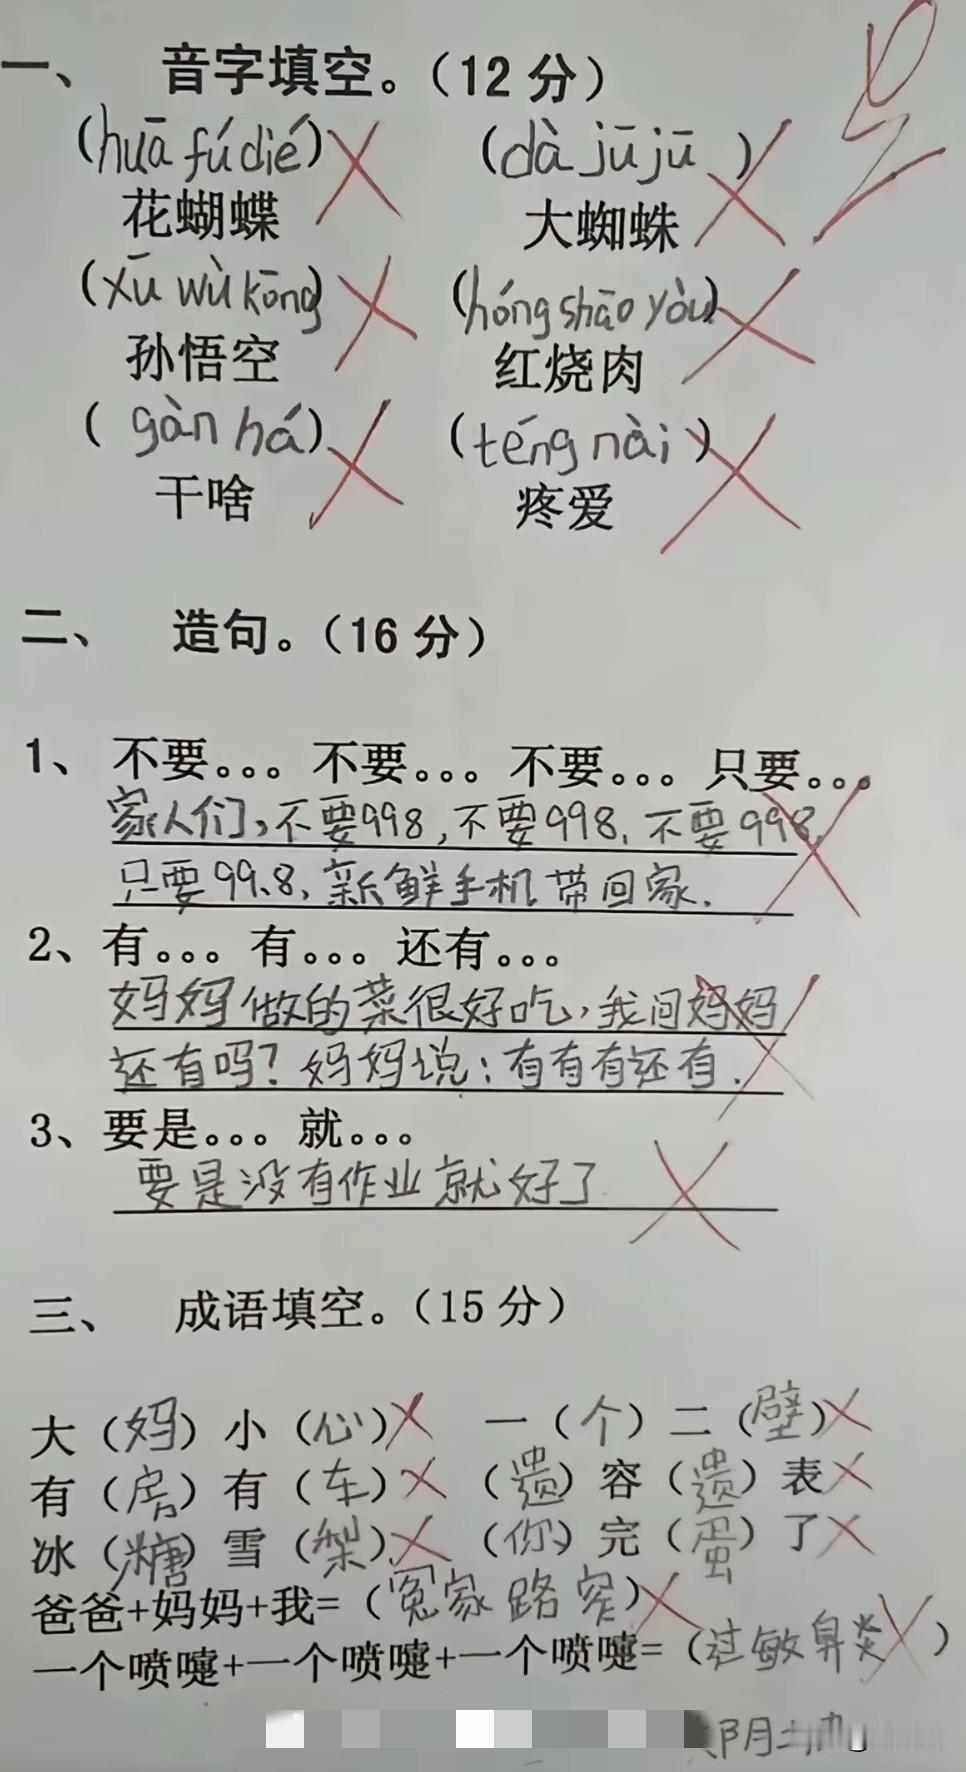 一、 音字填空。(12 分)
(huā fú dié) (dà jū jū )
花蝴蝶 大蜘蛛
(xū wù kōng) (hóng shāo yòu)
孙悟空 红烧肉
( gàn há) (téng nài )
干啥 疼爱
二、 造句。(16 分)
1、 不要。。。不要。。。不要。。。只要。。。
家人们,不要998,不要998,不要998,
只要99.8,新鲜手机带回家.
2、有。。。有。。。还有。。。
妈妈做的菜很好吃,我问妈妈
还有吗?妈妈说:有有有还有.
3、要是。。。就。。。
要是没有作业就好了
三、 成语填空。(15 分)
大(妈)小(心) 一(个)二(壁)
有(房)有(车) (遗)容(遗)表
冰(糖)雪(梨) (你)完(蛋)了
爸爸+妈妈+我=(冤家路窄)
一个喷嚏+一个喷嚏+一个喷嚏=(过敏鼻炎)
阴